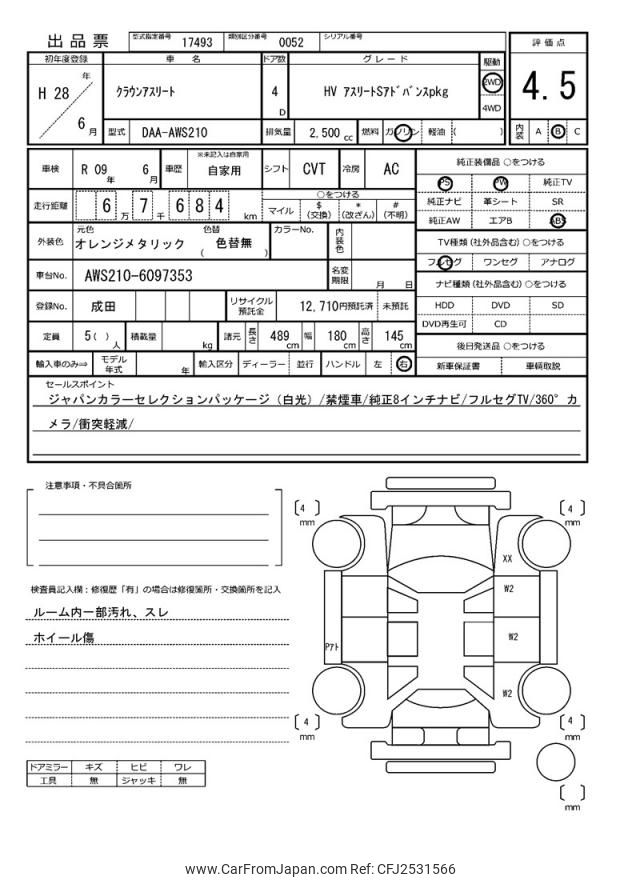 出品票
型式指定番号 17493 類別区分番号 0052 シリアル番号
評価点
初年度登録 車名 ドア数 グレード 駆動
H 28 年 6 月
クラウンアスリート
4 D
HV アスリートSアドバンスpkg
2WD
4WD
4.5
型式 DAA-AWS210 排気量 2,500 cc 燃料 ガソリン 軽油 ( )
内装 A B C
車検 R 09 年 6 月 車歴 ※未記入は自家用 自家用 シフト CVT 冷房 AC
純正装備品 ○をつける
PS PW 純正TV
純正ナビ 革シート SR
純正AW エアB ABS
走行距離 6 万 7 千 6 8 4 km
○をつける
マイル $ (交換) * (改ざん) # (不明)
TV種類 (社外品含む) ○をつける
フルセグ ワンセグ アナログ
外装色 元色 オレンジメタリック 色替 ( 色替無 ) カラーNo. 内装色
車台No. AWS210-6097353 名変期限 月 日
ナビ種類 (社外品含む) ○をつける
HDD DVD SD
DVD再生可 CD
登録No. 成田 リサイクル預託金 12,710円預託済 未預託
定員 5( ) 人 積載量 kg 諸元 長さ 489 cm 幅 180 cm 高さ 145 cm
後日発送品 ○をつける
新車保証書 車輌取説
輸入車のみ⇒ モデル年式 年 輸入区分 ディーラー 並行 ハンドル 左 右
セールスポイント
ジャパンカラーセレクションパッケージ（白光）/禁煙車/純正8インチナビ/フルセグTV/360°カ
メラ/衝突軽減/
注意事項・不具合箇所
検査員記入欄：修復歴「有」の場合は修復箇所・交換箇所を記入
ルーム内一部汚れ、スレ
ホイール傷
[ 4 ] mm
[ 4 ] mm
XX
W2
W2
Pアト
W2
[ 4 ] mm
[ 4 ] mm
[ ] mm
ドアミラー キズ ヒビ ワレ
工具 無 ジャッキ 無
www.CarFromJapan.com Ref: CFJ2531566